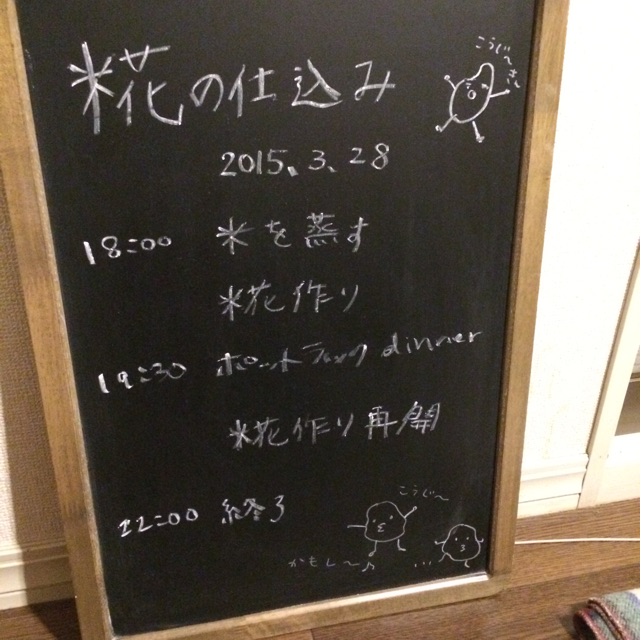 糀の仕込み
こうじ〜
2015.3.28
18:00 米を蒸す
糀作り
19:30 ポットラック dinner
糀作り再開
22:00 終了
こうじ〜
かもし〜♪
...